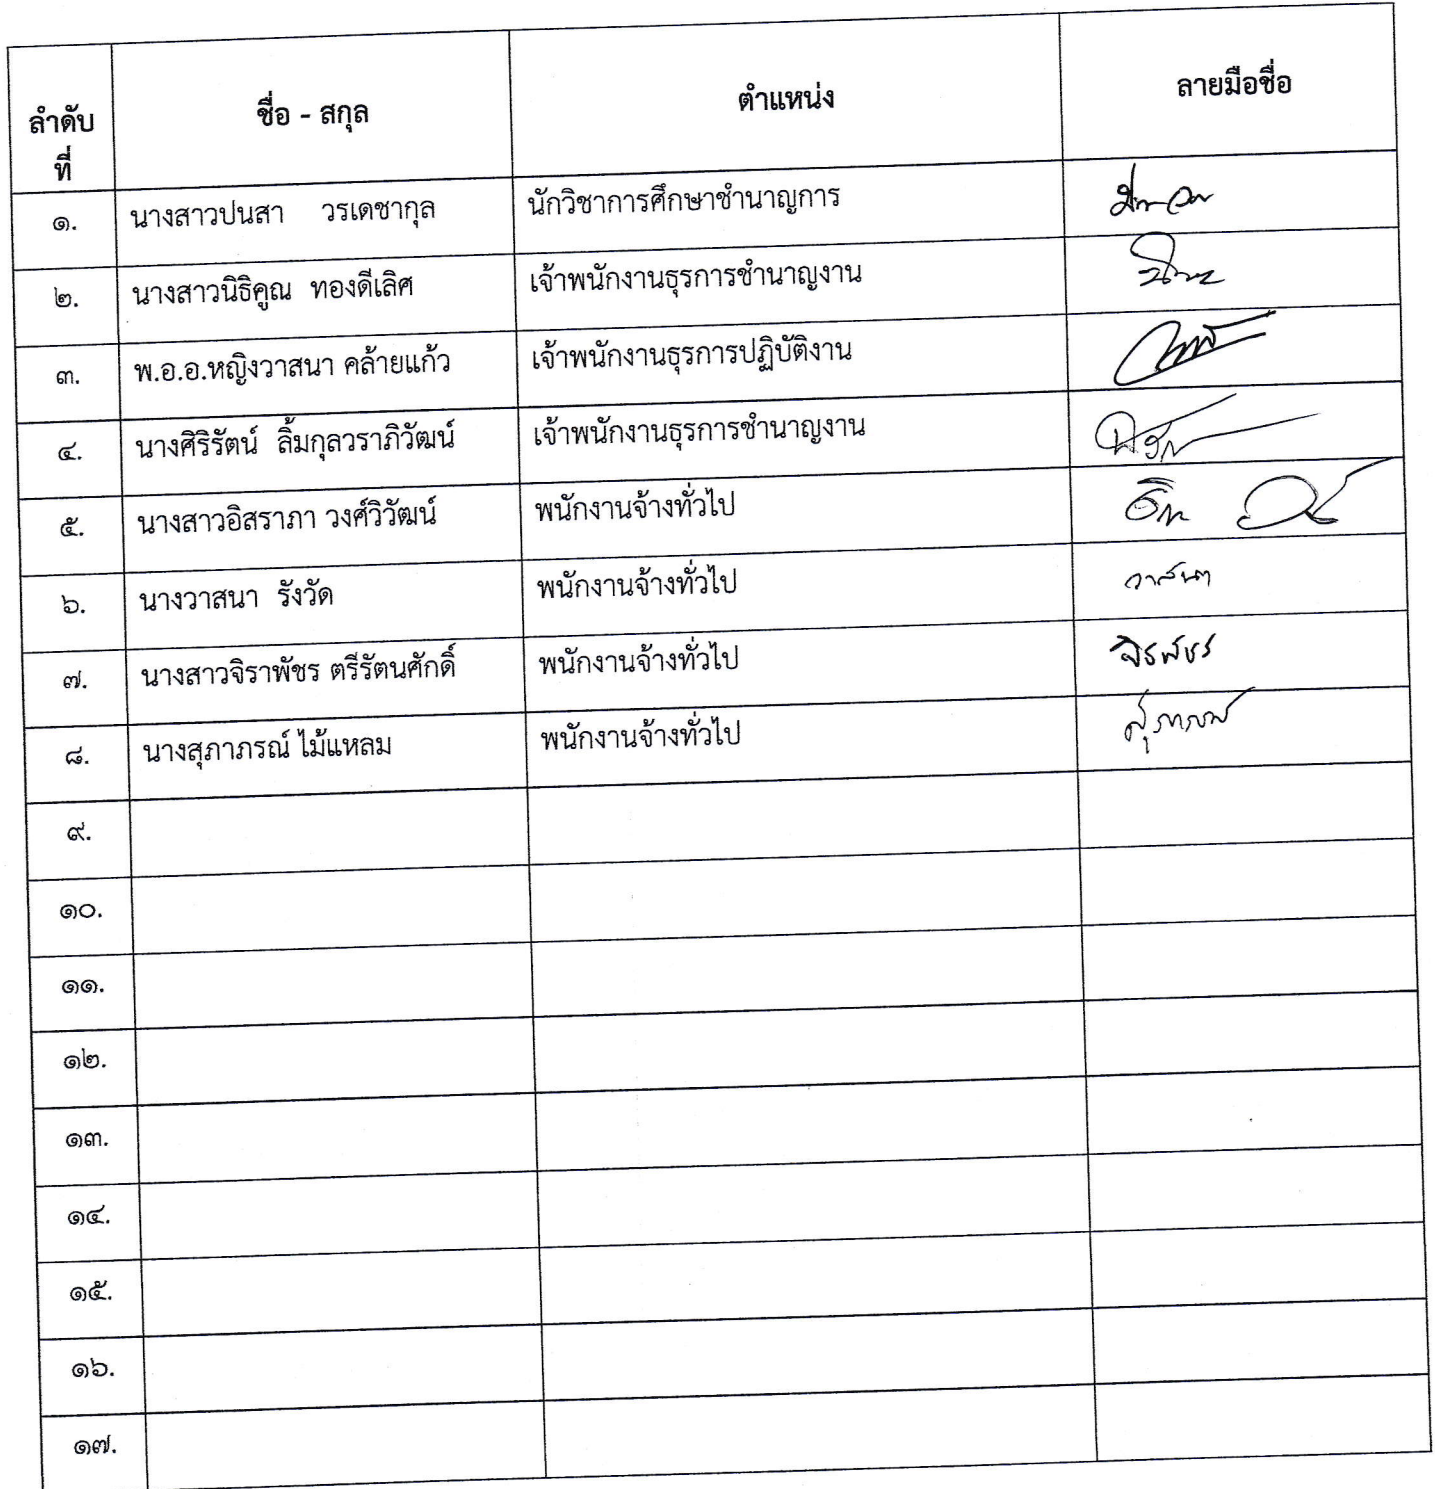 ลำดับ
ที่
ชื่อ - สกุล
ตำแหน่ง
ลายมือชื่อ
๑. นางสาวปนสา วรเดชากุล นักวิชาการศึกษาชำนาญการ
๒. นางสาวนิธิคูณ ทองดีเลิศ เจ้าพนักงานธุรการชำนาญงาน
๓. พ.อ.อ.หญิงวาสนา คล้ายแก้ว เจ้าพนักงานธุรการปฏิบัติงาน
๔. นางศิริรัตน์ ลิ้มกุลวราภิวัฒน์ เจ้าพนักงานธุรการชำนาญงาน
๕. นางสาวอิสราภา วงศ์วิวัฒน์ พนักงานจ้างทั่วไป
๖. นางวาสนา รังวัด พนักงานจ้างทั่วไป วาสนา
๗. นางสาวจิราพัชร ตรีรัตนศักดิ์ พนักงานจ้างทั่วไป
๘. นางสุภาภรณ์ ไม้แหลม พนักงานจ้างทั่วไป
๙.
๑๐.
๑๑.
๑๒.
๑๓.
๑๔.
๑๕.
๑๖.
๑๗.